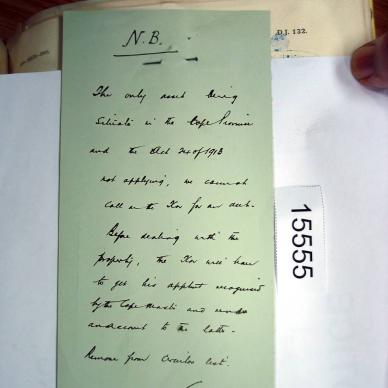 D.J. 132.
N.B.
The only asset being
situate in the Cape Province
and the Act 24 of 1913
not applying, we cannot
call on the Exor for an acct.
Before dealing with the
property, the Exor will have
to get his appltmt recognised
by the Cape Master and render
an account to the latter.
Remove from circular list.
15555